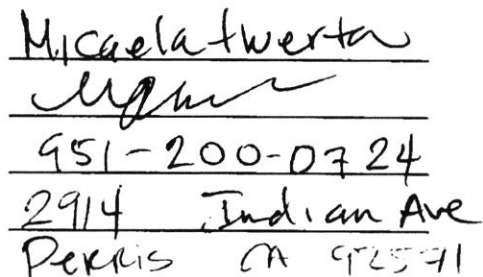 Micaela Huerta
951-200-0724
2914 Indian Ave
Perris CA 92571